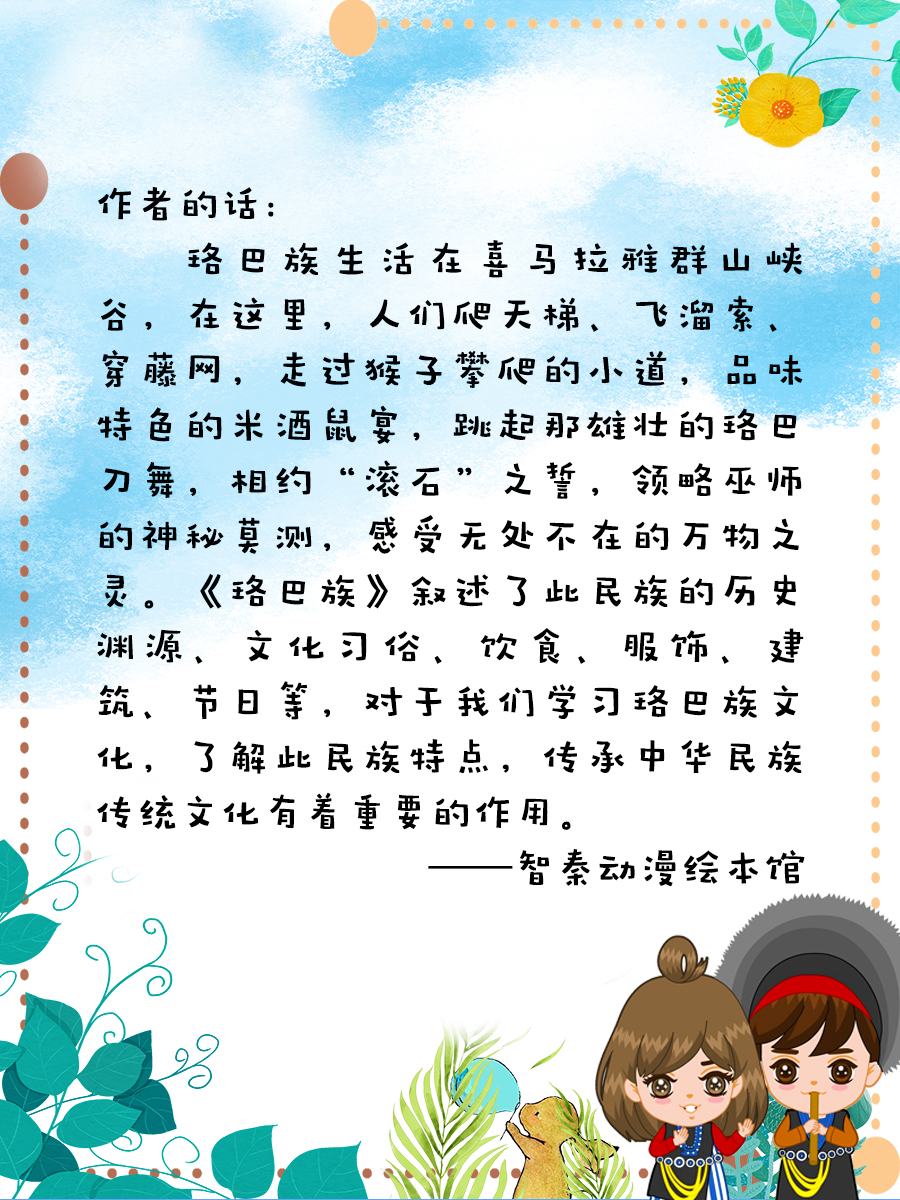 作者的话：
珞巴族生活在喜马拉雅群山峡
谷，在这里，人们爬天梯、飞溜索、
穿藤网，走过猴子攀爬的小道，品味
特色的米酒鼠宴，跳起那雄壮的珞巴
刀舞，相约“滚石”之誓，领略巫师
的神秘莫测，感受无处不在的万物之
灵。《珞巴族》叙述了此民族的历史
渊源、文化习俗、饮食、服饰、建
筑、节日等，对于我们学习珞巴族文
化，了解此民族特点，传承中华民族
传统文化有着重要的作用。
——智秦动漫绘本馆